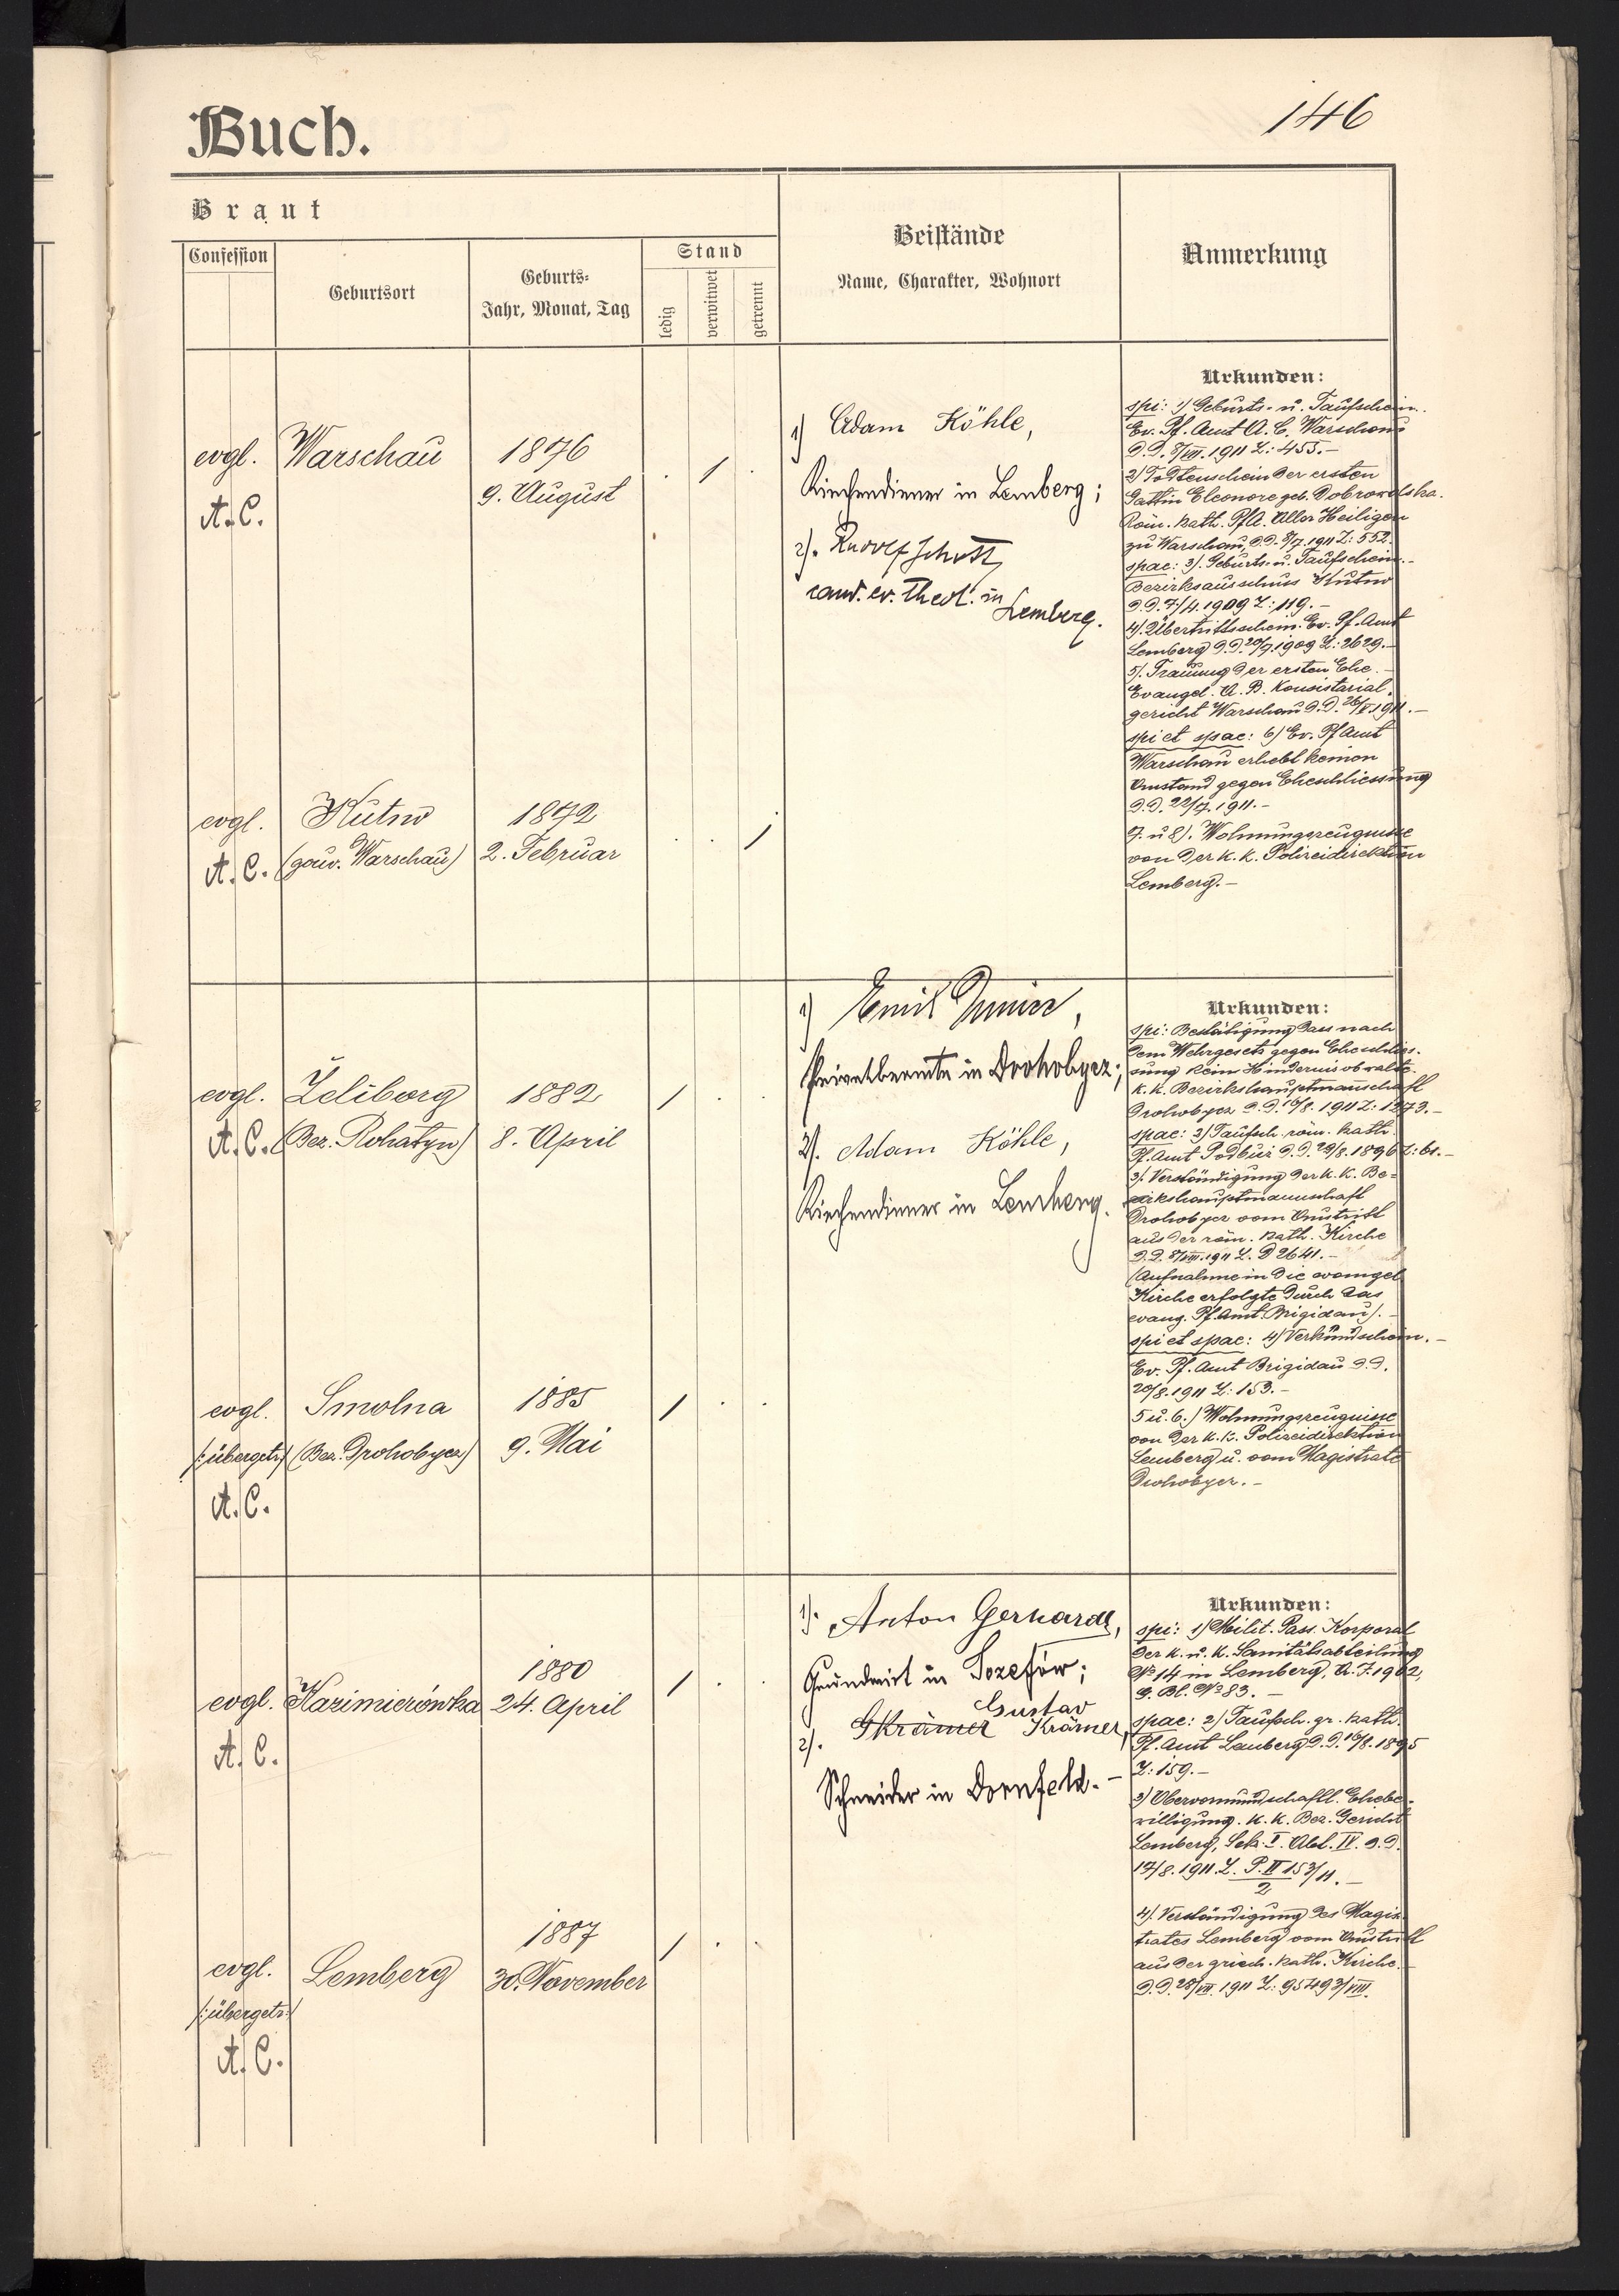 146
Buch.
Braut
Confession
Geburtsort
Geburts-
Jahr, Monat, Tag
Stand
ledig
verwitwet
getrennt
Beistände
Name, Charakter, Wohnort
Anmerkung
evgl.
A. C.
Warschau
1876
9. August
. 1 .
1) Adam Köhle,
Kirchendiener in Lemberg;
2). Rudolf Schott
cand. ev. theol. in
Lemberg.
Urkunden:
spi: 1) Geburts- u. Taufschein.
Ev. Pf. Amt A. C. Warschau
d.d. 8/VII. 1911 Z: 455.-
2) Todtenschein der ersten
Gattin Eleonore geb. Dobrowolska.
Röm. kath. PfA. Aller Heiligen
zu Warschau, d.d. 8/7. 1911 Z: 552.
spae: 3). Geburts- u. Taufschein.-
Bezirksausschuss Kutno
d.d. 7/4. 1909 Z: 119.-
4). Übertrittsschein. Ev. Pf. Amt
Lemberg d.d. 20/9. 1909 Z: 2629.-
5). Trauung der ersten Ehe.-
Evangel. A. B. Konsistorial-
gericht Warschau d.d. 26/V. 1911.-
spi et spae: 6) Ev. Pf Amt
Warschau erhebt keinen
Umstand gegen Eheschliessung
d.d. 22/7. 1911.-
7. u 8). Wohnungszeugnisse
von der k. k. Polizeidirektion
Lemberg.-
evgl.
A. C.
Kutno
(gouv. Warschau)
1872
2. Februar
. . 1
evgl.
A. C.
Želibory
(Bez. Rohatyn)
1882
8. April
1 . .
1) Emil
Privatbeamte in Drohobycz;
2). Adam Köhle,
Kirchendiener in Lemberg.
Urkunden:
spi: Bestätigung dass nach
dem Wehrgesetz gegen Eheschlies-
sung kein Hindernis obwalte.
K. k. Bezirkshauptmannschaft
Drohobycz d.d. 16/8. 1911 Z: 1273.-
spae: 2) Taufsch. röm. kath.
Pf. Amt Podbuż d.d. 29/8. 1896 Z: 61.-
3). Verständigung der k. k. Be-
zirkshauptmannschaft
Drohobycz vom Austritt
aus der röm. kath. Kirche
d.d. 8/VIII. 1911 Z. D 2641.-
(Aufnahme in die evangel
Kirche erfolgte durch das
evang. Pf. Amt. Brigidau).-
spi et spae: 4) Verkündschein.-
Ev. Pf. Amt Brigidau d.d.
20/8. 1911 Z: 153.-
5 u. 6.) Wohnungszeugnisse
von der k. k. Polizeidirektion
Lemberg u. vom Magistrate
Drohobycz.-
evgl.
/:übergetr:/
A. C.
Smolna
(Bez. Drohobycz)
1885
9. Mai
1 . .
evgl.
A. C.
Kazimierówka
1880
24. April
1 . .
1). Anton Gerhardt,
Grundwirt in Józefów;
Gustav
2). GKrämer Krämer,
Schneider in Dornfeld.-
Urkunden:
spi: 1) Milit. Pass. Korporal
der k. u. k. Sanitätsabteilung
No 14 in Lemberg, A. J. 1902,
G. Bl. No 83.-
spae: 2) Taufsch. gr. kath.
Pf. Amt Lemberg d.d. 16/8. 1895
Z: 159.-
3) Obervormundschaftl. Ehebe-
willigung. K. K. Bez. Gericht
Lemberg, Sek. I. Abt. IV. d.d.
17/8. 1911. Z. P. II 153/11.-
2
4). Verständigung des Magis-
trates Lemberg vom Austritt
aus der griech. kath. Kirche.
d.d. 28/VII. 1911 Z: 95493/VIII.
evgl.
/:übergetr:/
A. C.
Lemberg
1887
30. November
1 . .